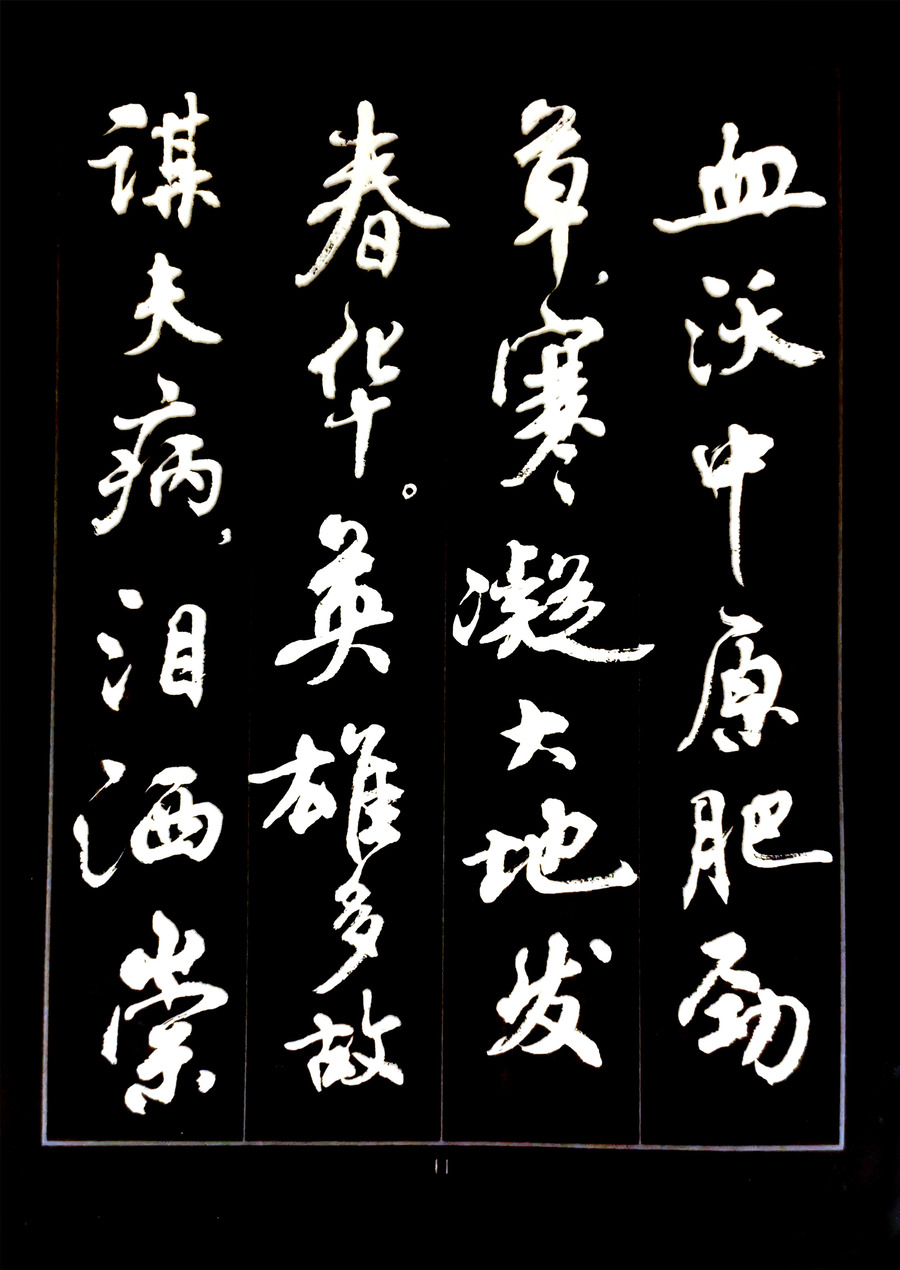 血沃中原肥劲
草,寒凝大地发
春华。英雄多故
谋夫病,泪洒崇
11